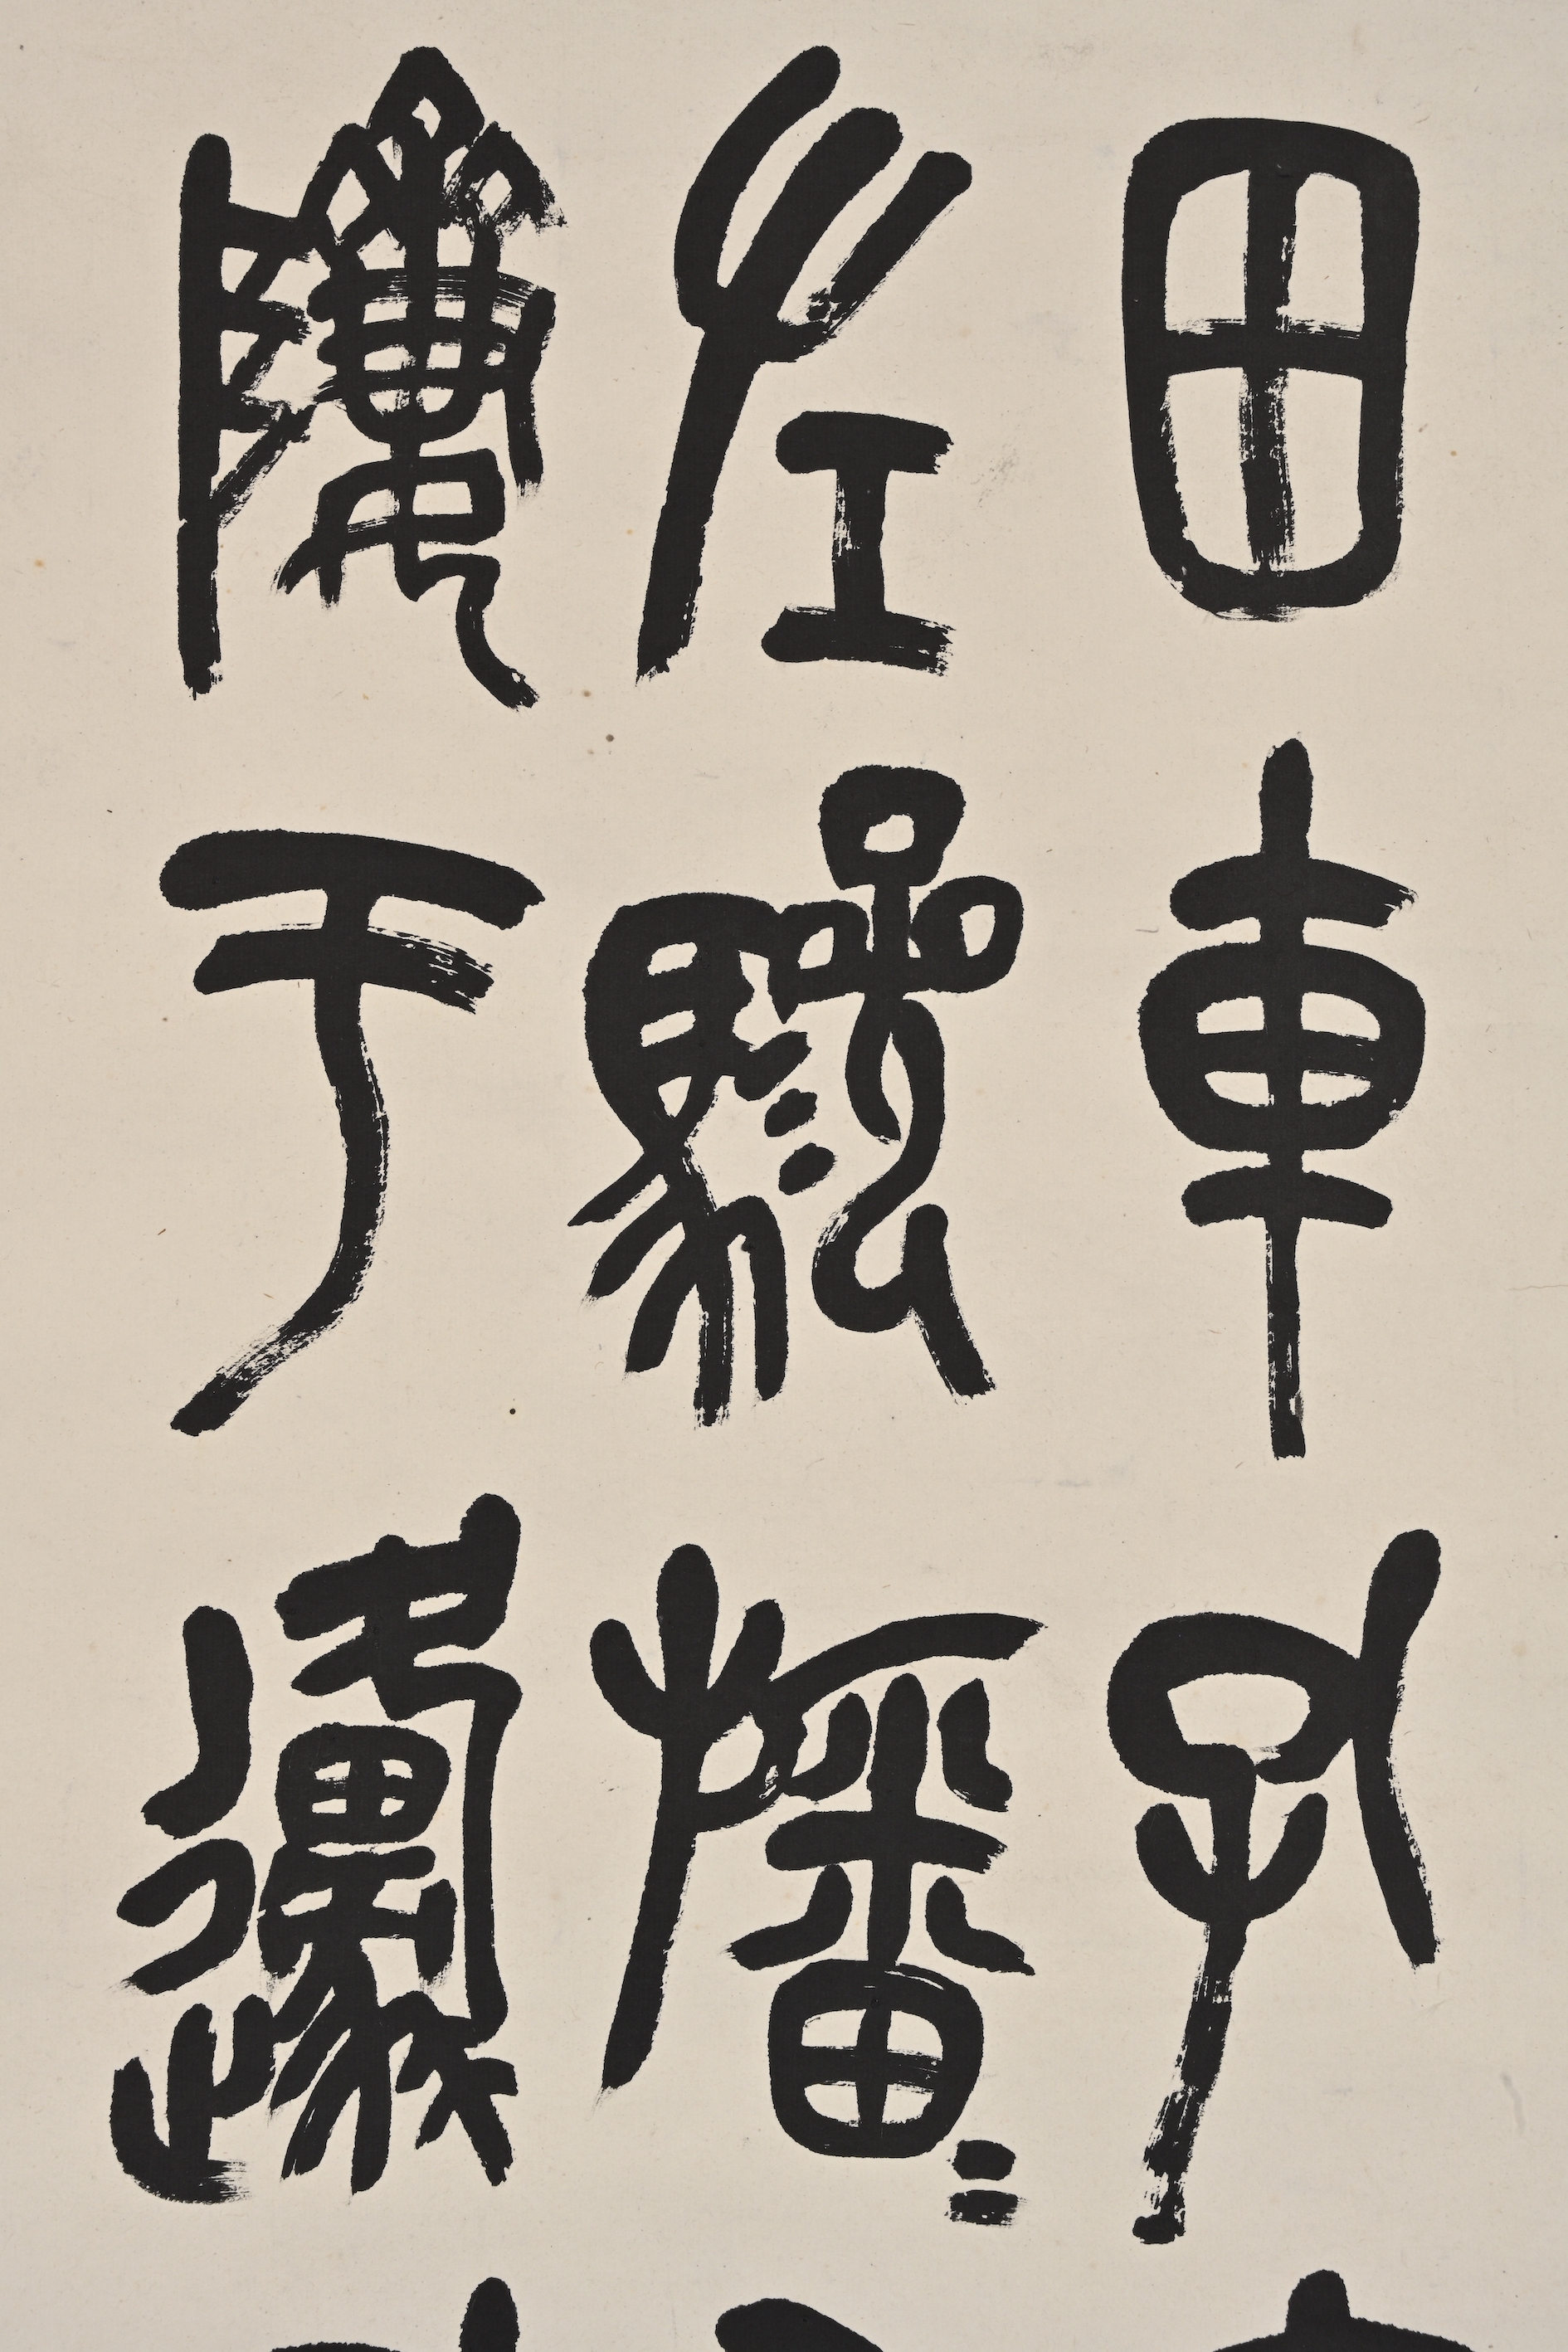 田車孔
左驂旛=
隮于邍